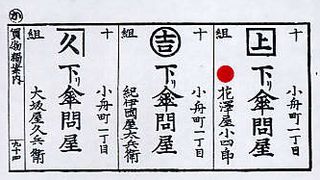 十 小舟町一丁目
上 下リ傘問屋
組 花澤屋小四郎
十 小舟町一丁目
吉 下リ傘問屋
組 紀伊國屋太兵衛
十 小舟町一丁目
久 下リ傘問屋
組 大坂屋久兵衛
か 買物獨案内 九十四